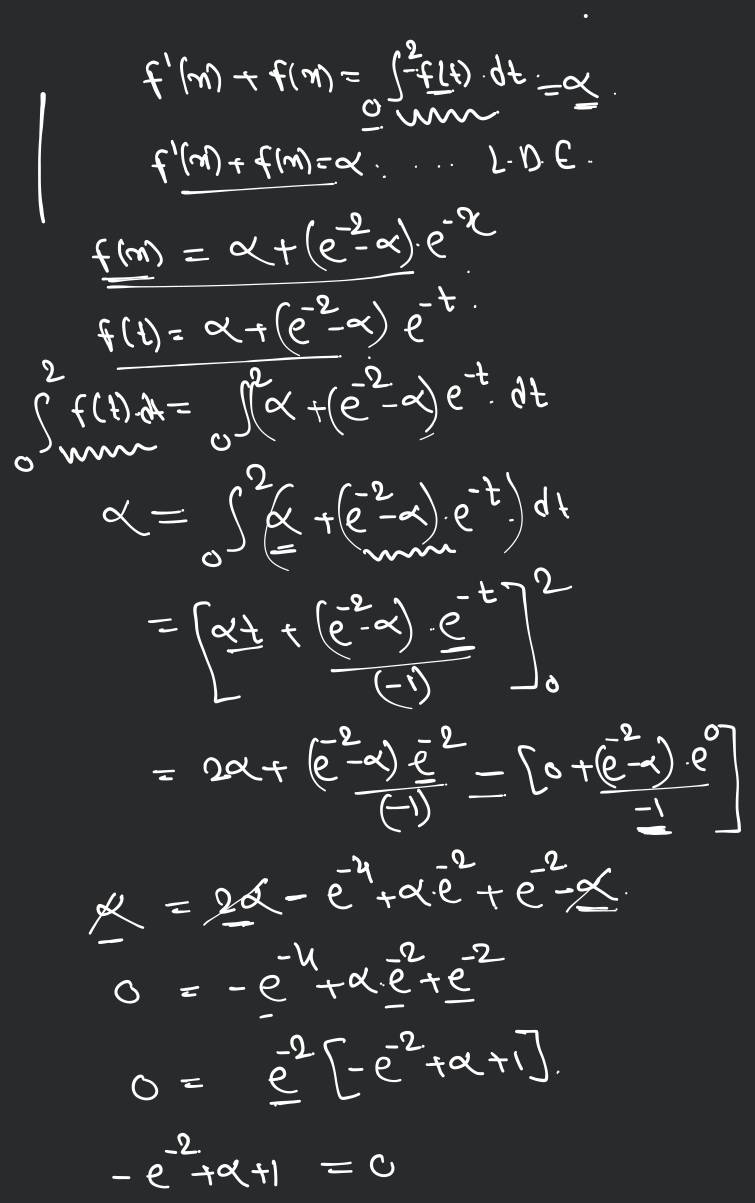 f'(x) + f(x) = ∫₀² f(t) dt = α.
f'(x) + f(x) = α. .... L.D.E.
f(x) = α + (e⁻² - α).e⁻ˣ
f(t) = α + (e⁻² - α) e⁻ᵗ.
∫₀² f(t).dt = ∫₀² (α + (e⁻² - α) e⁻ᵗ. dt
α = ∫₀² (α + (e⁻² - α).e⁻ᵗ.) dt
= [αt + (e⁻² - α).e⁻ᵗ/(-1)]₀²
= 2α + (e⁻² - α) e⁻²/(-1) - [0 + (e⁻² - α).e⁰/-1]
α = 2α - e⁻⁴ + α.e⁻² + e⁻² - α.
0 = - e⁻⁴ + α.e⁻² + e⁻²
0 = e⁻² [- e⁻² + α + 1].
- e⁻² + α + 1 = 0